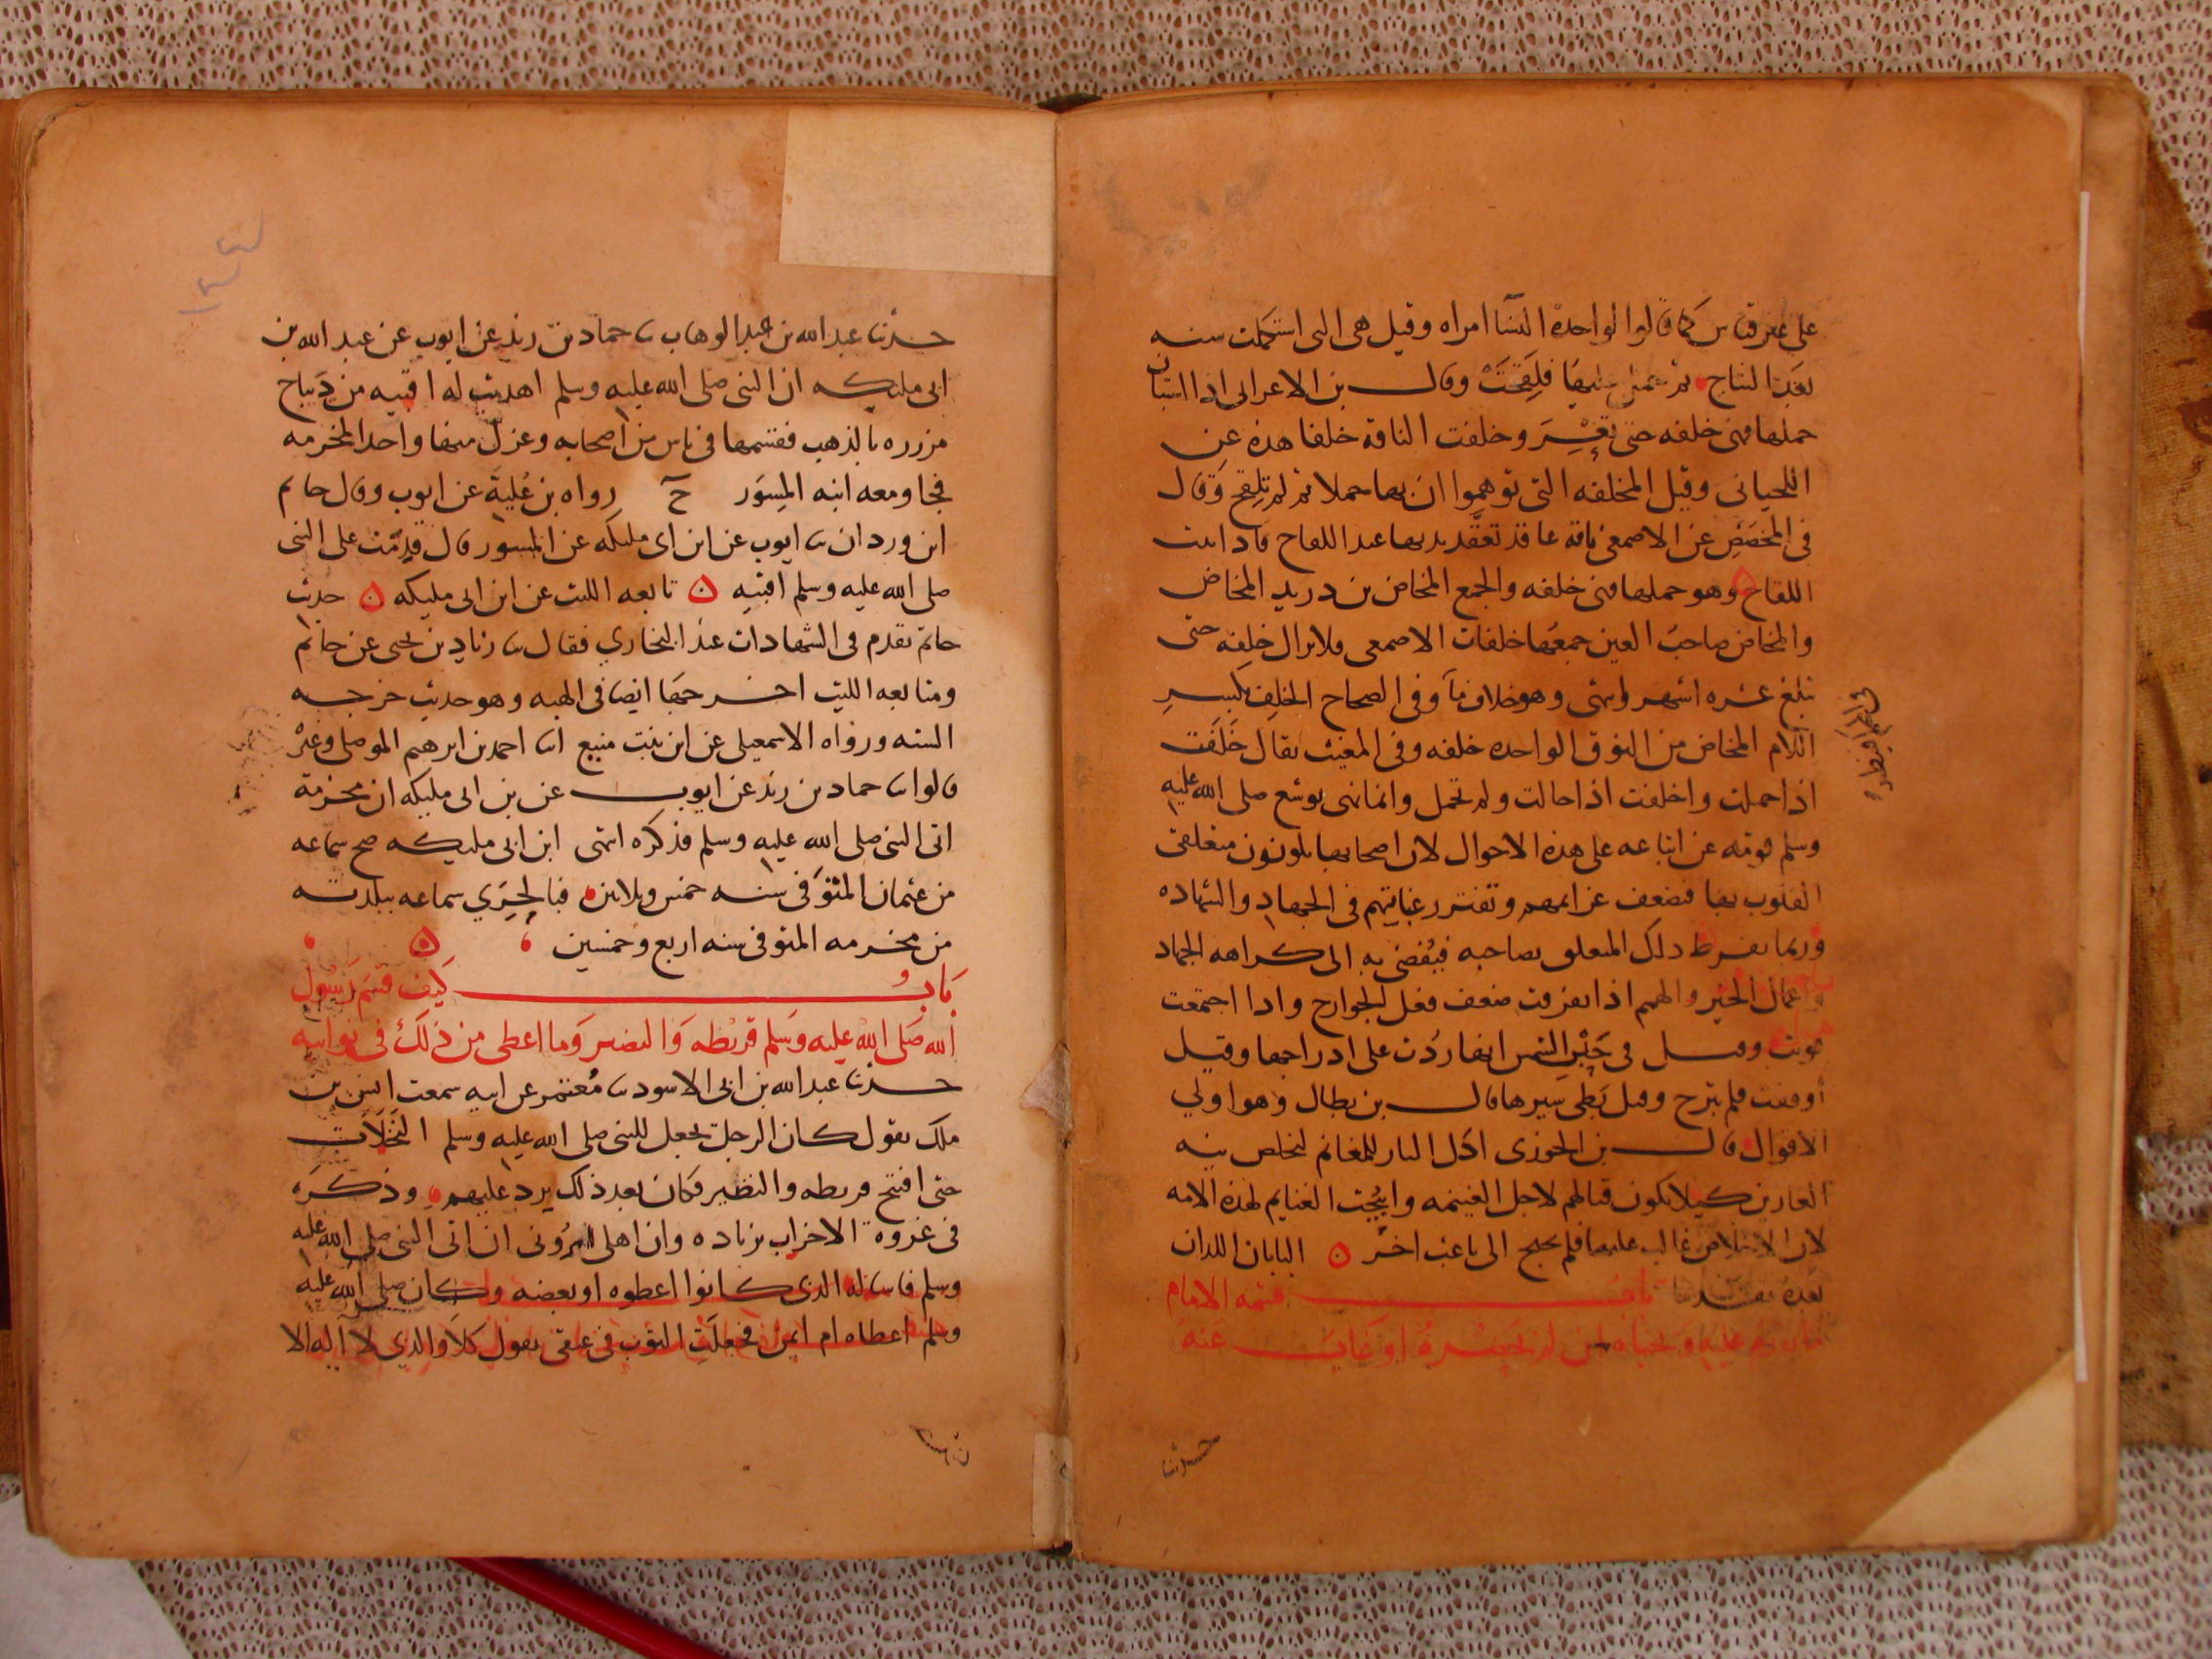 على غير قياس كما قالوا لواحدة النسآ امراه وقيل هى التى استكملت سنه
بعد النتاج ثم حمل عليها فلقحت وقال بن الاعرابى اذا استبان
حملها فهى خلفه حتى تعشر وخلفت الناقة خلفا هذه عن
اللحيانى وقيل المخلفه التى توهموا ان بها حملا ثم لم تلقح وقال
فى المخصص عن الاصمعى ناقة عاقد تعقد بذنبها عند اللقاح فاذا ثبت
اللقاح وهو حملها فهى خلفه والجمع المخاض بن دريد المخاض
والمخاض صاحب العين جمعها خلفات الاصمعى ولا يزال خلفه حتى
تبلغ عشره اشهر وانتهى وهو خلاف مآ وفى الصحاح الخلف بكسر
اللام المخاض من النوق الواحده خلفه وفى المغيث يقال خلفت
اذا حملت واخلفت اذا حالت ولم تحمل وانما نهى يوشع صلى الله عليه
وسلم قومه عن اتباعه على هذه الاحوال لان اصحابها يكونون متعلقى
القلوب بها فتضعف عزايمهم وتفتر رغباتهم فى الجهاد والشهاده
وربما يفرط ذلك المتعلق بصاحبه فيفضى به الى كراهه الجهاد
واعمال الخير والهمم اذا تفرقت ضعف فعل الجوارح واذا اجتمعت
قويت وقيل فى حبس الشمس انها ردت على ادراجها وقيل
أوقفت فلم تبرح وقيل بطى سيرها قال بن بطال وهو اولي
الاقوال قال بن الجوزى اكل النار للغنائم لتخلص نيه
الغازين كيلا يكون قتالهم لاجل الغنيمه وابيحت الغنايم لهذه الامه
لان الاخلاص غالب عليها فلم يحتج الى باعث اخر ه البابان اللذان
بعده باب قسمه الامام
ما يقدم عليه ويخباه لمن لم يحضره او غاب عنه
حدثنا
حدثنا عبد الله بن عبد الوهاب ثنا حماد بن زيد عن ايوب عن عبد الله بن
ابى مليكه ان النبى صلى الله عليه وسلم اهديت له اقبيه من ديباج
مزرره بالذهب فقسمها فى ناس من اصحابه وعزل منها واحدا لمخرمه
فجا ومعه ابنه المسور حَ رواه بن علية عن ايوب وقال حاتم
ابن وردان ثنا ايوب عن ابن ابى مليكه عن المسور قال قدمت على النبى
صلى الله عليه وسلم اقبيه ه تابعه الليث عن ابن ابى مليكه ه حديث
حاتم تقدم فى الشهادات عند البخاري فقال ثنا زياد بن يحيى عن حاتم
ومتابعه الليث اخرجها ايضا فى الهبه وهو حديث خرجه
السته ورواه الاسمعيلى عن ابن بنت منيع انا احمد بن ابرهيم الموصلى وغيره
قالوا انا حماد بن زيد عن ايوب عن بن ابى مليكه ان مخرمة
اتى النبى صلى الله عليه وسلم فذكره انتهى ابن ابى مليكه صح سماعه
من عثمان المتوفى سنه خمس وثلاثين فبالحري سماعه ببلدته
من مخرمه المتوفى سنه اربع وخمسين ه
باب كيف قسم رسول
الله صلى الله عليه وسلم قريظه والنضير وما اعطى من ذلك فى نوائبه
حدثنا عبد الله بن ابى الاسود ثنا معتمر عن ابيه سمعت انس بن
ملك يقول كان الرجل يجعل للنبى صلى الله عليه وسلم النخلات
حتى افتتح قريظه والنظير فكان بعد ذلك يرد عليهم وذكره
فى غزوة الاحزاب بزياده وان اهلى امرونى ان اتى النبى صلى الله عليه
وسلم فاساله الذى كانوا اعطوه او بعضه وكان صلى الله عليه
وسلم اعطاه ام ايمن فجعلت الثوب فى عنقى يقول كلا والذي لا اله الا